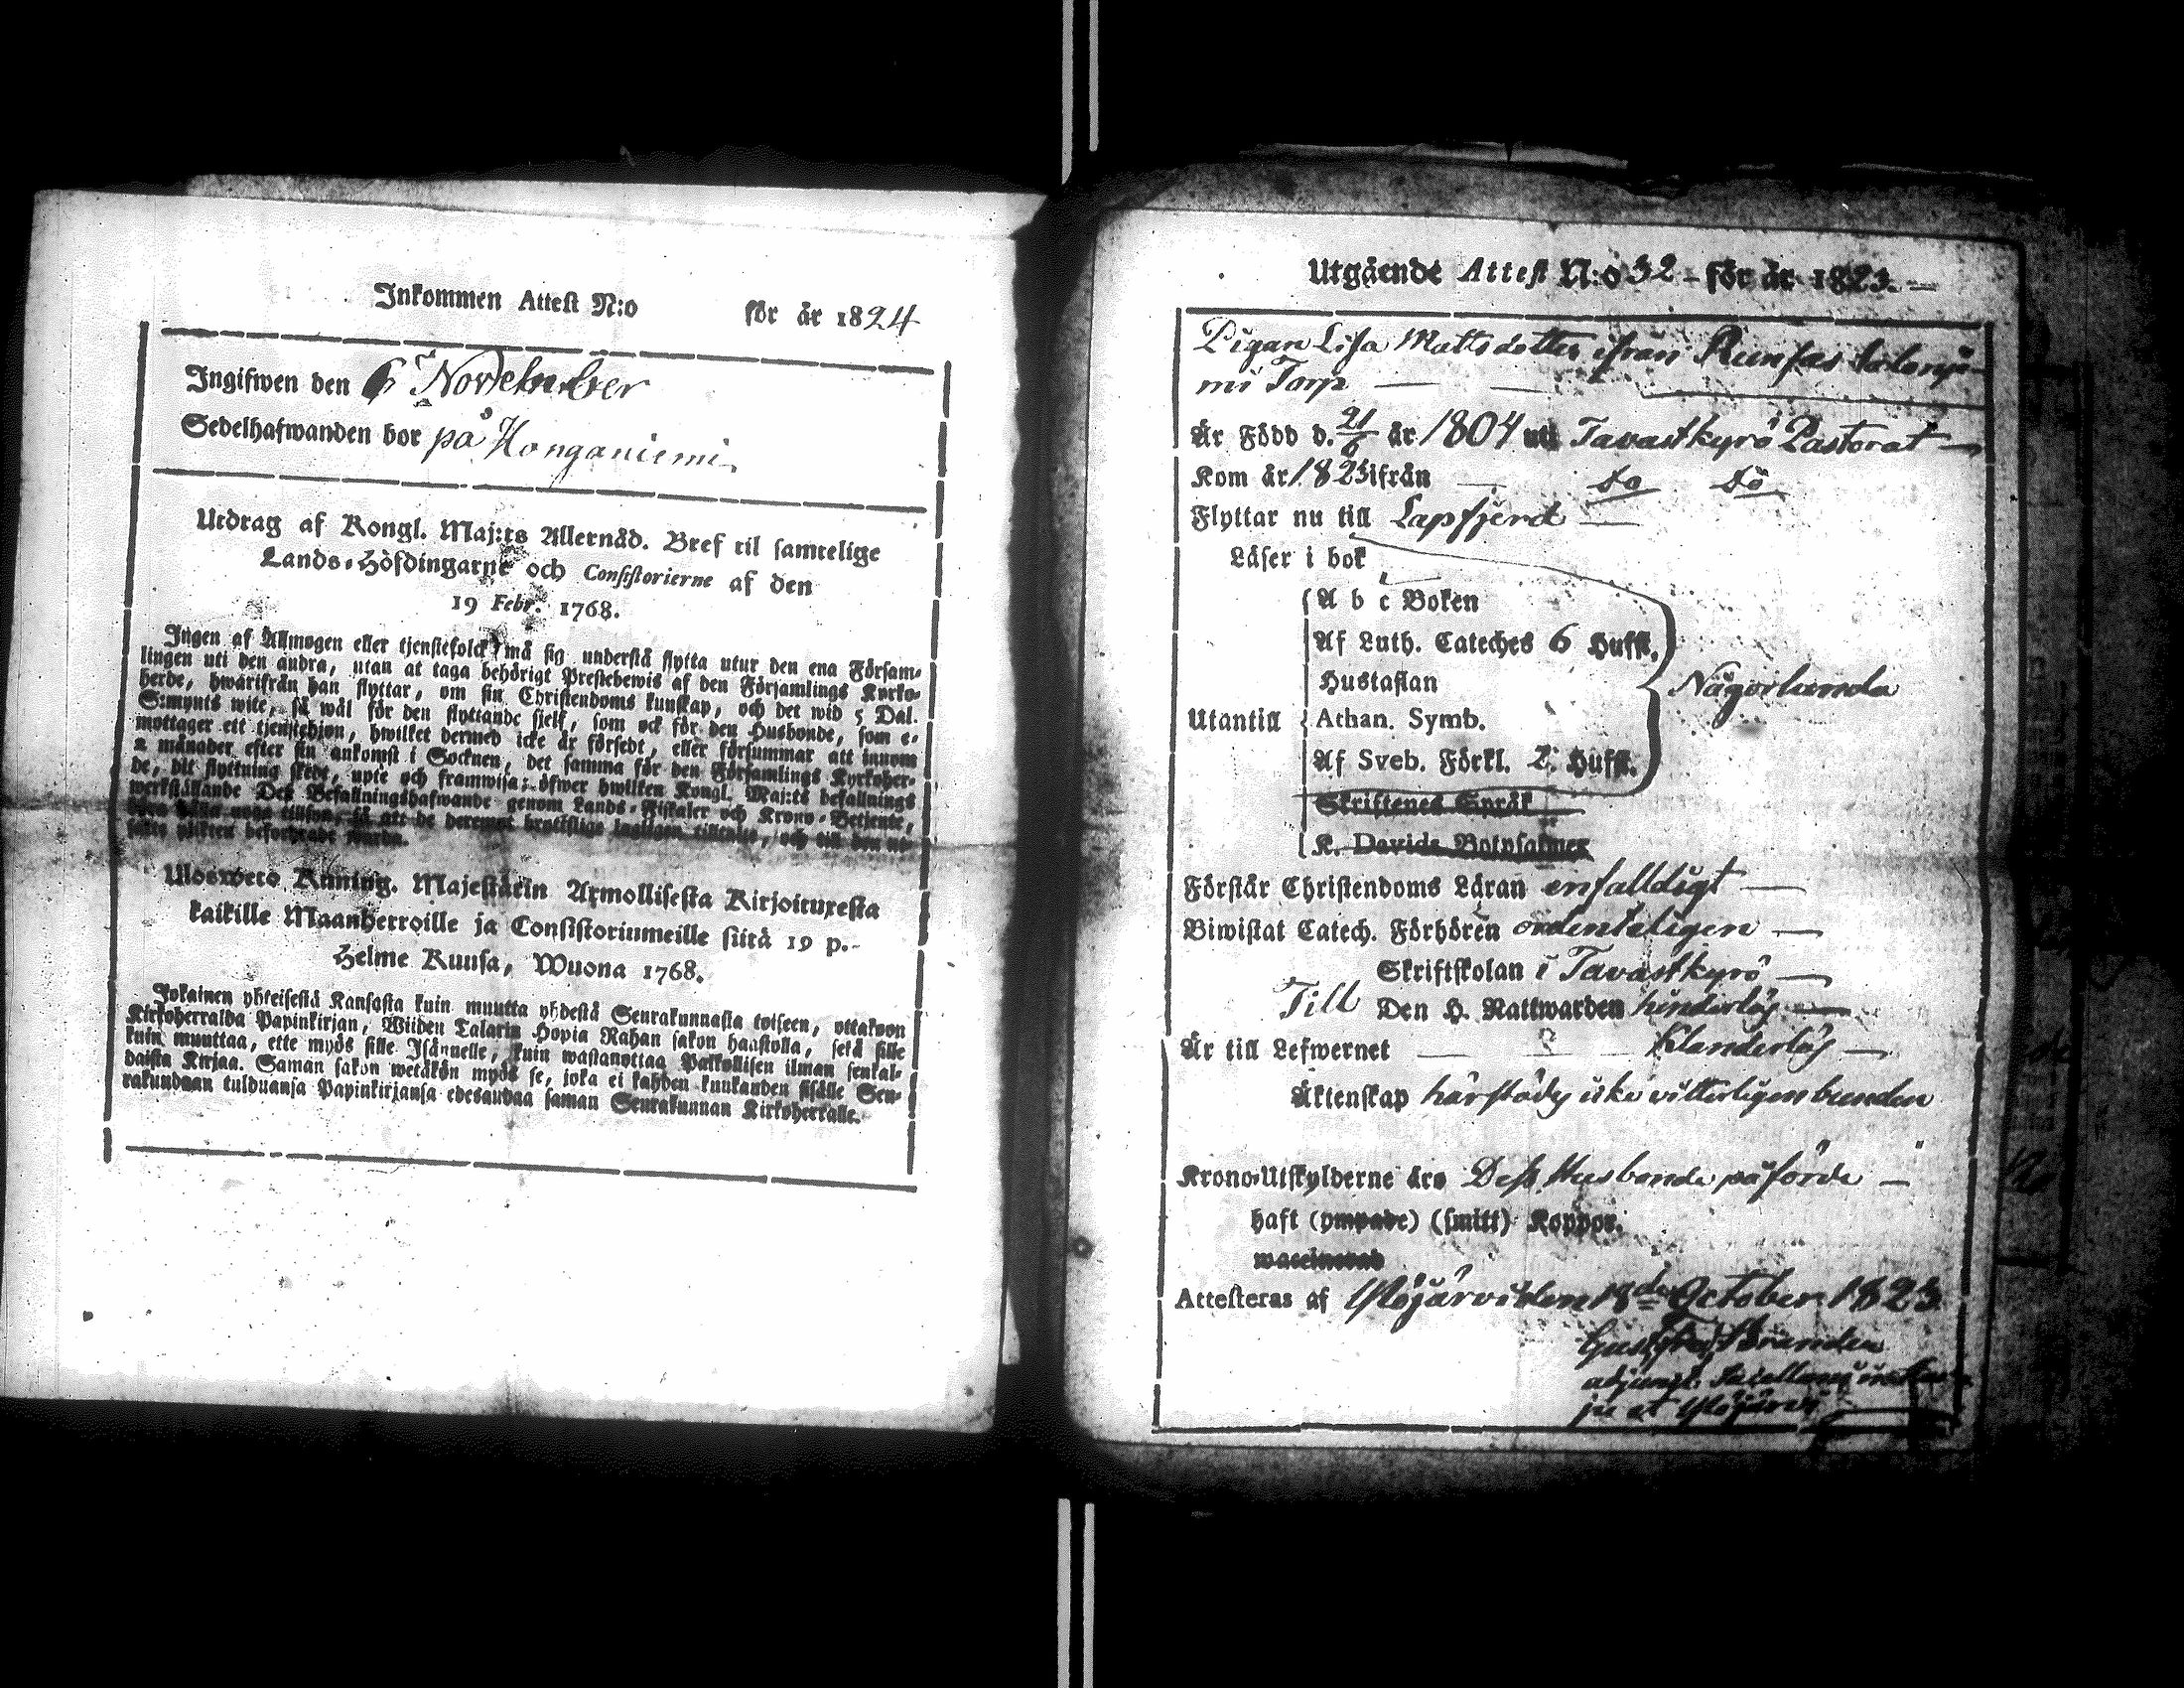 Inkommen Attest N:o för år 1824
Ingifwen den 6 November
Sedelhafwanden bor på Honganiemi
Utdrag af Kongl. Maj:ts Allernåd. Bref til samtelige
Lands-Höfdingarne och Consistorierne af den
19 Febr. 1768.
Ingen af Allmogen eller tjenstefolck må sig understå flytta utur den ena Försam-
lingen uti den andra, utan at taga behörigt Prestebewis af den Församlings Kyrko-
herde, hwarifrån han flyttar, om sin Christendoms kunskap, och det wid 5 Dal.
S:mynts wite, så wäl för den flyttande sjelf, som ock för den Husbonde, som e-
mottager ett tjenstehjon, hwilket dermed icke är försedt, eller försummar att innom
2 månader efter sin ankomst i Socknen, det samma för den Församlings Kyrkoher-
de, dit flyttning skedt, upte och framwisa; öfwer hwilken Kongl. Maj:ts befallnings
werkställande Des Befallningshafwande genom Lands-Fiskaler och Krono-Betjente,
böra hålla noga tilsyn, så att de deremot brottslige lagligen tilltalas, och till den ut-
satte plikten befordrade warda.
Ulosweto Kuning. Majestätin Armollisesta Kirjoituxesta
kaikille Maanherroille ja Consistoriumeille siitä 19 p.
Helme Kuusa, Wuona 1768.
Jokainen yhteisestä Kansasta kuin muutta yhdestä Seurakunnasta toiseen, ottakoon
Kirkoherralda Papinkirjan, Wiiden Talarin Hopia Rahan sakon haastolla, sekä sille
kuin muuttaa, ette myös sille Isännelle, kuin wastanottaa Palkollisen ilman senkal-
daista Kirjaa. Saman sakon wetäkön myös se, joka ei kahden kuukauden sisälle Seu-
rakundaan tulduansa Papinkirjansa edesandaa saman Seurakunnan Kirkoherralle.
Utgående Attest N:o 32 för år 1823.
Pigan Lisa Mattsdotter ifrån Runsas
mi Torp
Är Född d. 21/6 år 1804 uti Tavastkyrö Pastorat
Kom år 1823 ifrån do do
Flyttar nu till Lapfjerd
Läser i bok
A b c Boken
Af Luth. Cateches 6 Hufst.
Hustaflan
Någorlunda
Utantill Athan. Symb.
Af Sveb. Förkl. 2: Hufst.
Skriftenes Språk
K. Davids Botpsalmer
Förstår Christendoms Läran enfalldigt
Biwistat Catech. Förhören ordenteligen
Skriftskolan i Tavastkyrö
Till Den H. Nattwarden hinderlös
Är till Lefwernet Klanderlös
Äktenskap härstädes icke vitterligen bunden
Krono-Utskylderne äro Dess Husbonde påförde
haft (ympade) (smitt) Koppor.
waccinerad
Attesteras af Ylöjärvi den 18de October 1823
Gustaf
adjunct.
Ylöjärvi